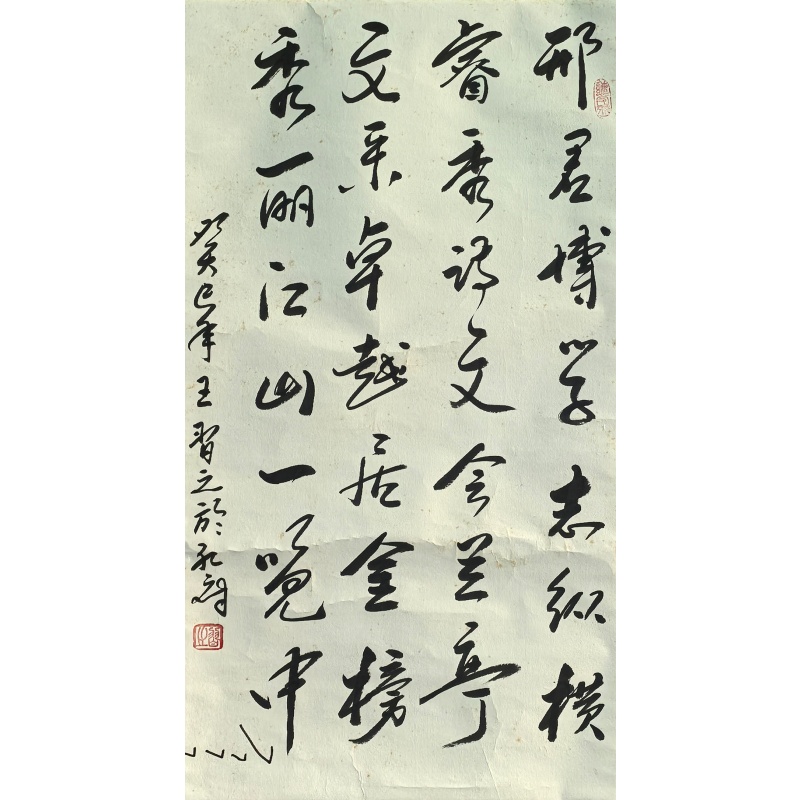 邢君博学志纵横
睿秀诗文会兰亭
文采卓越居金榜
秀丽江山一览中
癸巳年王习之於